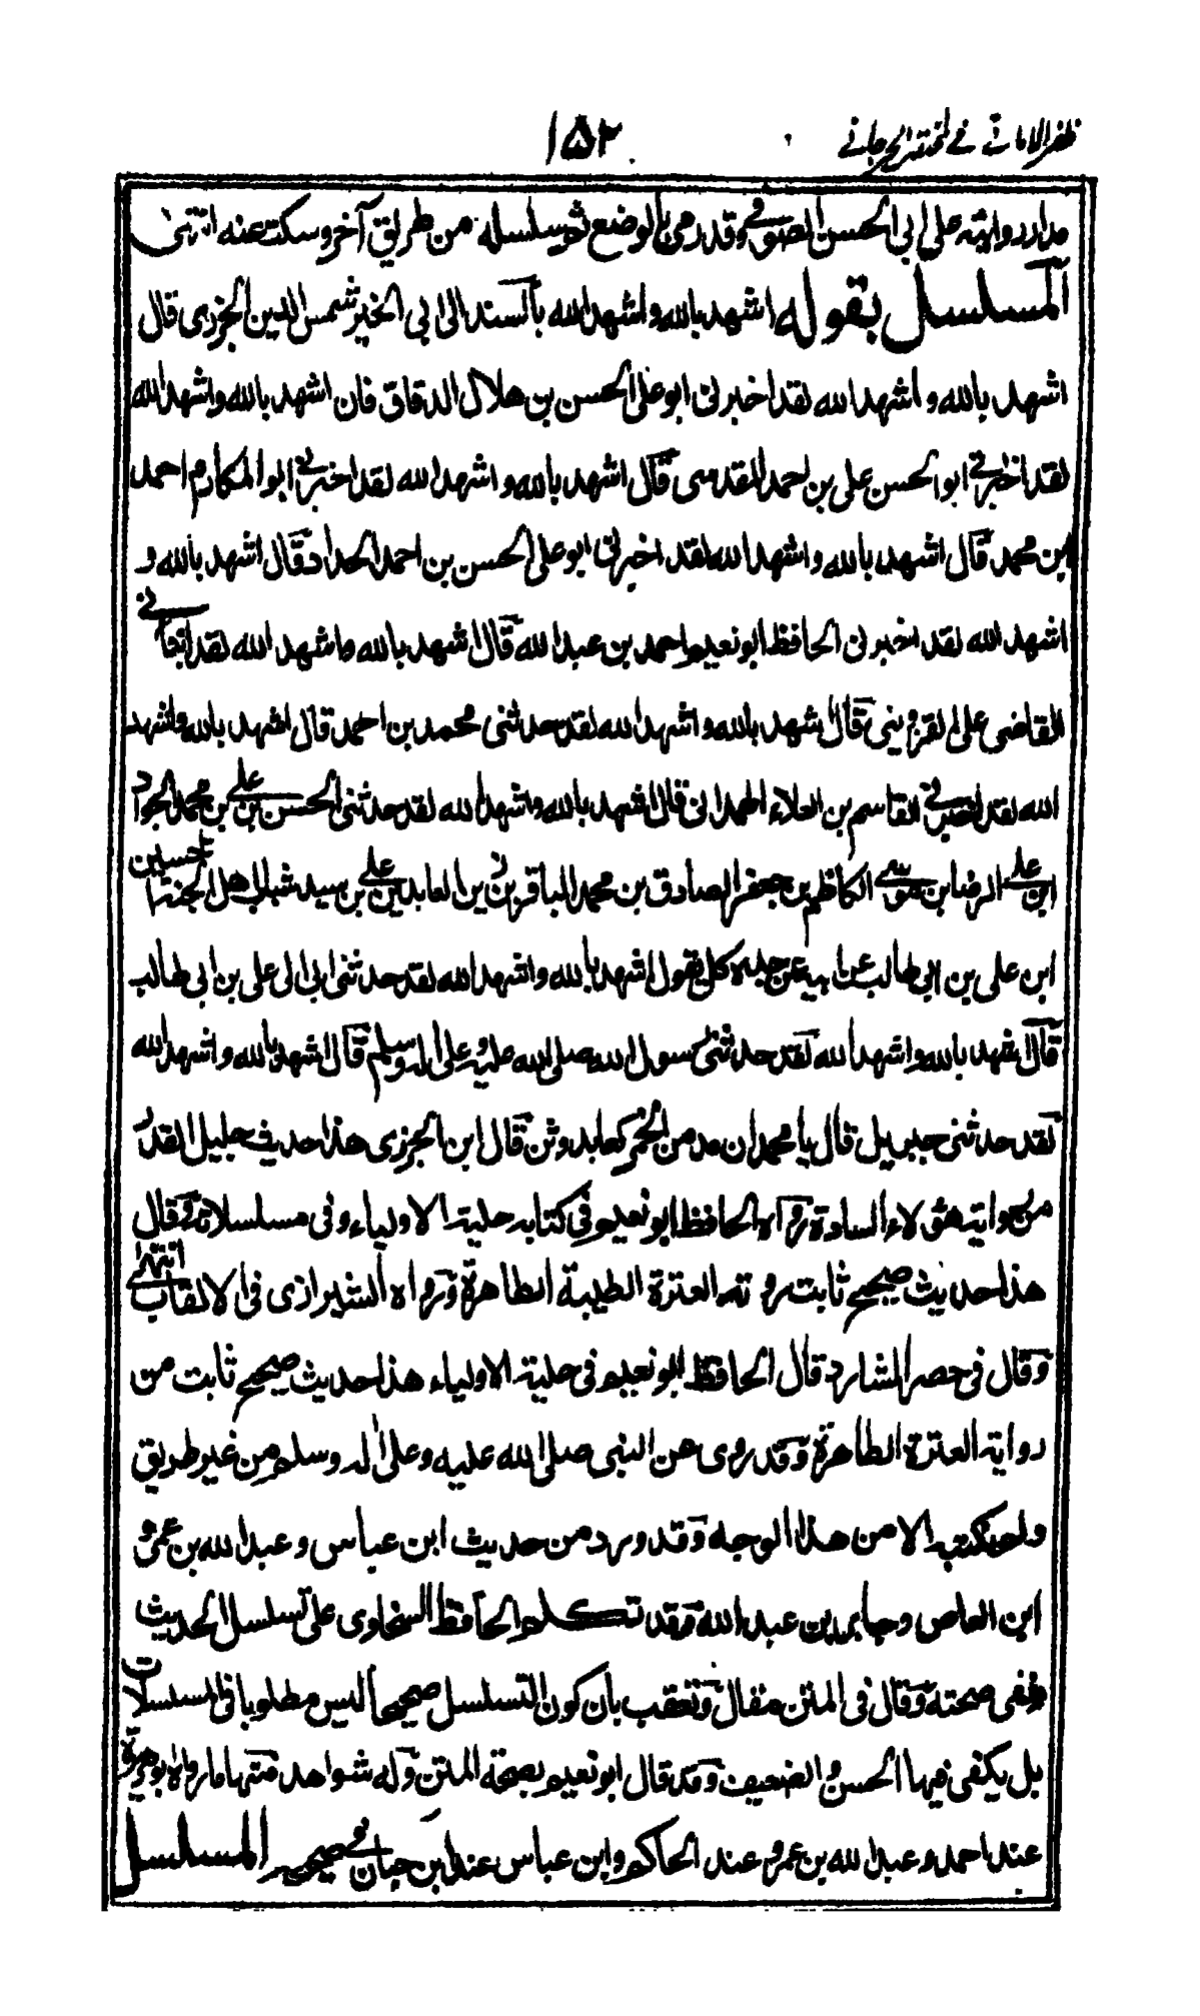 ظفر الامانى فے المختصر الجرجانے ١٥٢
مدار روايته على ابى الحسن الصوفے وقد رمى بالوضع ثم سلسله من طريق آخر وسكت عنه انتهى
المسلسل بقوله اشهد بالله واشهد الله بالسند الى ابى الخير شمس الدين الجزرى قال
اشهد بالله واشهد الله لقد اخبرنى ابو على الحسن بن هلال الدقاق قال اشهد بالله واشهد الله
لقد اخبرنے ابو الحسن على بن احمد المقدسى قال اشهد بالله واشهد الله لقد اخبرنے ابو المكارم احمد
بن محمد قال اشهد بالله واشهد الله لقد اخبرنى ابو على الحسن بن احمد الحداد قال اشهد بالله و
اشهد الله لقد اخبرنى الحافظ ابو نعيم احمد بن عبد الله قال اشهد بالله واشهد الله لقد انبأنے
القاضى على القزوينى قال اشهد بالله واشهد الله لقد حدثنى محمد بن احمد قال اشهد بالله واشهد
الله لقد اخبرنے القاسم بن العلاء الهمدانى قال اشهد بالله واشهد الله لقد حدثنى الحسن بن علے بن محمد الجواد
ابن علے الرضا بن موسے الكاظم بن جعفر الصادق بن محمد الباقر بن زين العابدين علے بن سيد شباب اهل الجنة حسين
ابن على بن ابى طالب عن ابيه عن جده كل يقول اشهد بالله واشهد الله لقد حدثنى ابى الى على بن ابى طالب
قال اشهد بالله واشهد الله لقد حدثنى رسول الله صلى الله عليه وعلى اله وسلم قال اشهد بالله واشهد الله
لقد حدثنى جبريل قال يا محمد ان مدمن الخمر كعابد وثن قال ابن الجزرى هذا حديث جليل القدر
من رواية هؤلاء السادة رواه الحافظ ابو نعيم فى كتابه حلية الاولياء وفى مسلسلاته وقال
هذا حديث صحيح ثابت روته العترة الطيبة الطاهرة ورواه الشيرازى فى الالقاب انتهى
وقال فى حصر الشارد قال الحافظ ابو نعيم فى حلية الاولياء هذا حديث صحيح ثابت من
رواية العترة الطاهرة وقد روى عن النبى صلى الله عليه وعلى اله وسلم من غير طريق
ولم نكتبه الا من هذا الوجه وقد ورد من حديث ابن عباس وعبد الله بن عمرو
ابن العاص وجابر بن عبد الله وقد تكلم الحافظ السخاوى على تسلسل الحديث
ونفى صحته وقال فى المتن مقال وتعقب بان كون التسلسل صحيحا ليس مطلوبا فى المسلسلات
بل يكفى فيها الحسن والضعيف وقد قال ابو نعيم بصحة المتن وله شواهد فمنها ما رواه ابو هريرة
عند احمد وعبد الله بن عمرو عند الحاكم وابن عباس عند ابن حبان فے صحيحه المسلسل